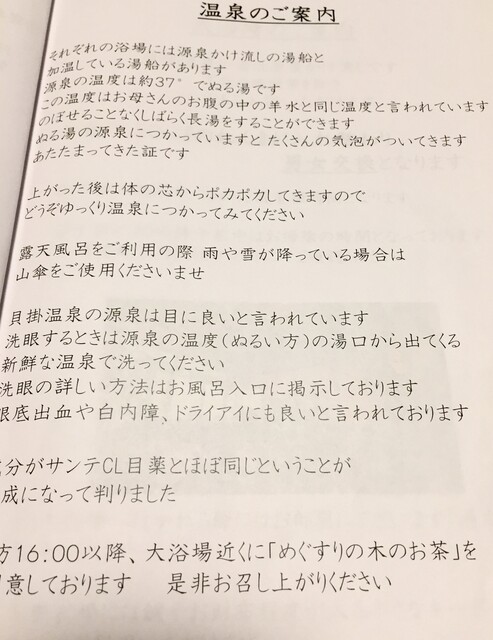 温泉のご案内
それぞれの浴場には源泉かけ流しの湯船と
加温している湯船があります
源泉の温度は約37°でぬる湯です
この温度はお母さんのお腹の中の羊水と同じ温度と言われています
のぼせることなくしばらく長湯をすることができます
ぬる湯の源泉につかっていますと たくさんの気泡がついてきます
あたたまってきた証です
上がった後は体の芯からポカポカしてきますので
どうぞゆっくり温泉につかってみてください
露天風呂をご利用の際 雨や雪が降っている場合は
山傘をご使用くださいませ
貝掛温泉の源泉は目に良いと言われています
洗眼するときは源泉の温度(ぬるい方)の湯口から出てくる
新鮮な温泉で洗ってください
洗眼の詳しい方法はお風呂入口に掲示しております
眼底出血や白内障、ドライアイにも良いと言われております
分がサンテCL目薬とほぼ同じということが
成になって判りました
方16:00以降、大浴場近くに「めぐすりの木のお茶」を
意しております 是非お召し上がりください